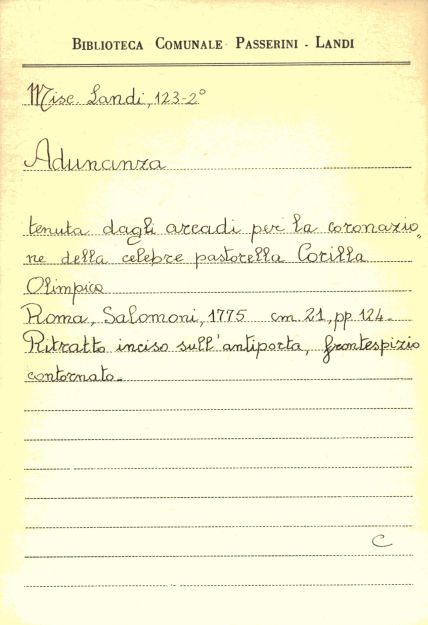 BIBLIOTECA COMUNALE PASSERINI - LANDI
Misc. Landi, 123-2°
Adunanza
tenuta dagli arcadi per la coronazio,,
ne della celebre pastorella Corilla
Olimpica
Roma, Salomoni, 1775 cm. 21, pp. 124.
Ritratto inciso sull'antiporta, frontespizio
contornato.
C